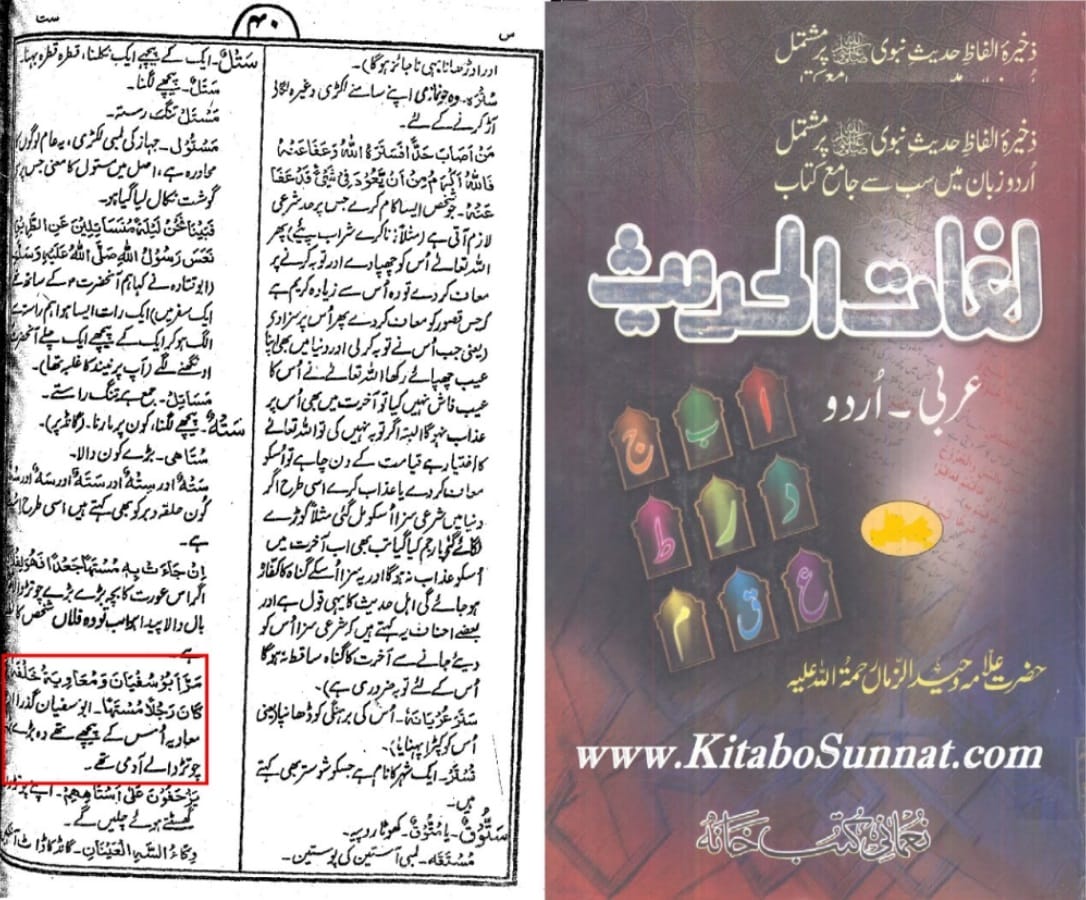 س
۴۰
ست
اور اوڑھانا بھی ناجائز ہوگا)۔
سُتْرَہ۔ وہ جو نمازی اپنے سامنے لکڑی وغیرہ لگالے
آڑ کرنے کے لئے۔
مَنْ اَصَابَ حَدًّا فَسَتَرَہُ اللّٰہُ وَعَفَا عَنْہُ
فَاللّٰہُ اَکْرَمُ مِنْ اَنْ یَّعُوْدَ فِیْ شَیْءٍ قَدْ عَفَا
عَنْہُ۔ جو شخص ایسا کام کرے جس پر حد شرعی
لازم آتی ہے (مثلاً زنا کرے شراب پئے) پھر
اللہ تعالےٰ اُس کو چھپا دے اور توبہ کرنے پر
معاف کردے تو وہ اُس سے زیادہ کریم ہے
کہ جس قصور کو معاف کردے پھر اُس پر سزا دی
(یعنی جب اُس نے توبہ کرلی اور دنیا میں بھی اپنا
عیب چھپائے رکھا اللہ تعالےٰ نے اُس کا
عیب فاش نہیں کیا تو آخرت میں بھی اُس پر
عذاب نہوگا البتہ اگر توبہ نہیں کی تو اللہ تعالےٰ
کا اختیار ہے قیامت کے دن چاہے تو اُسکو
معاف کردے یا عذاب کرے اسی طرح اگر
دنیا میں شرعی سزا اُسکو مل گئی مثلاً کوڑے
لگائے گئے یا رجم کیا گیا تب بھی اب آخرت میں
اُسکو عذاب نہ ہوگا اور یہ سزا اُسکے گناہ کا کفارہ
ہوجائے گی اہل حدیث کا یہی قول ہے اور
بعضے احناف یہ کہتے ہیں کہ شرعی سزا اُس کو
دیئے جانے سے آخرت کا گناہ ساقط نہ ہوگا
اُس کے لئے توبہ ضروری ہے)
سَتَرَ عُرْیَانَہٗ۔ اُس کی برہنگی کو ڈھانپا (یعنی
اُس کو کپڑا پہنایا)۔
تُسْتَر۔ ایک شہر کا نام ہے جسکو شوستر بھی کہتے
ہیں۔
سَتُّوْقٌ۔ یا سُتُّوْقٌ۔ کھوٹا روپیہ۔
مُسْتَقَہ۔ لمبی آستین کی پوستین۔
سَتْلٌ۔ ایک کے پیچھے ایک نکلنا، قطرہ قطرہ بہنا۔
سَتَلٌ۔ پیچھے لگنا۔
مَسْتَلٌ تنگ رستہ۔
مَسْتُوْل۔ جہاز کی لمبی لکڑی، یہ عام لوگوں کا
محاورہ ہے، اصل میں مستول کا معنی جس پر
گوشت نکال لیا گیا ہو۔
فَبَیْنَا نَحْنُ لَیْلَۃً مُتَسَاتِلِیْنَ عَنِ الطَّرِیْقِ
نَعَسَ رَسُوْلُ اللّٰہِ صَلَّی اللّٰہُ عَلَیْہِ وَسَلَّمَ
(ابوقتادہ نے کہا ہم آنحضرت کے ساتھ تھے
ایک سفر میں) ایک رات ایسا ہوا ہم راستے
الگ ہوکر ایک کے پیچھے ایک چلے آنحضرت
اونگھنے لگے (آپ پر نیند کا غلبہ تھا)۔
مَسَاتِل۔ جمع ہے تنگ راستے۔
سَتْہٌ۔ پیچھے لگنا، کون پر مارنا۔ (گانڈ پر)۔
سُتَاهی۔ بڑے کون والا۔
سَتْہٌ اور سِتْہٌ اور سَتَہٌ اور سَہٌ اور
کون حلقہ دبر کو بھی کہتے ہیں اسی طرح
ہے۔
اِنْ جَاءَتْ بِہٖ مُسْتَهًا جَعْدًا فَهُوَ لِفُلَا
اگر اس عورت کا بچہ بڑے بڑے چوتڑ
بال والا پیدا ہوا جب تو وہ فلاں شخص کا
ہے۔
مَرَّ اَبُوْسُفْیَانَ وَمُعَاوِیَۃُ خَلْفَہٗ
کَانَ رَجُلًا مُسْتَهًا۔ ابوسفیان گذرا اور
معاویہ اُس کے پیچھے تھے وہ بڑے
چوتڑ والے آدمی تھے۔
یَزْحَفُوْنَ عَلٰی اَسْتَاهِهِمْ۔ اپنے چوتڑوں
گھسٹتے ہوئے چلیں گے۔
وِکَاءُ السَّہِ الْعَیْنَانِ۔ گانڈ کا ڈاٹ
ذخیرۂ الفاظِ حدیثِ نبوی ﷺ پر مشتمل
ذخیرۂ الفاظِ حدیثِ نبوی ﷺ پر مشتمل
اُردو زبان میں سب سے جامع کتاب
لغات الحدیث
عربی ۔ اُردو
ا ب ج
د ر ط
ع ق م
حضرت علامہ وحید الزماں رحمۃ اللہ علیہ
www.KitaboSunnat.com
نعمانی کتب خانہ